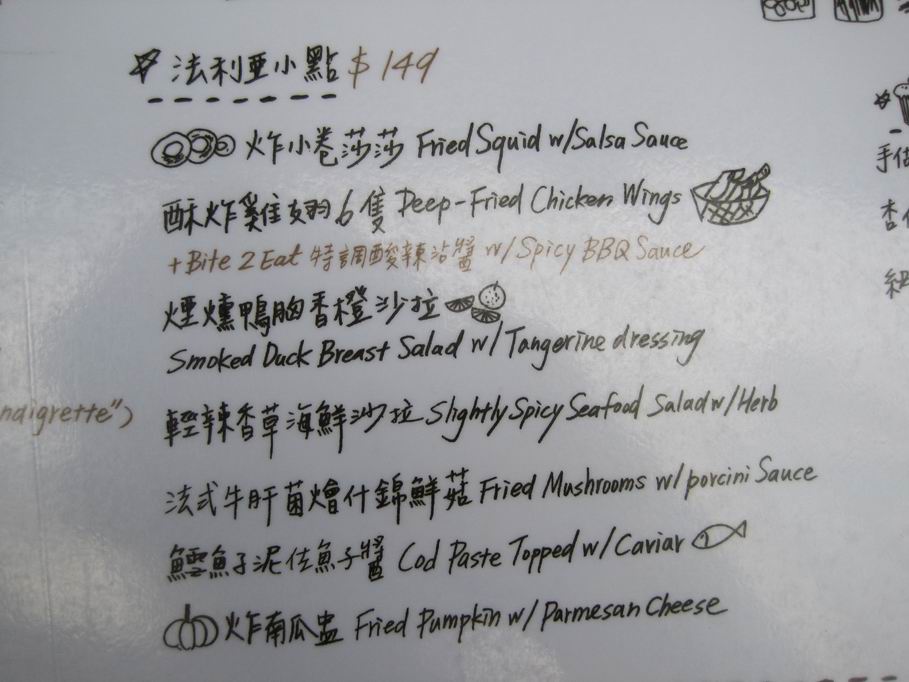 法利亞小點 $149
炸小卷莎莎 Fried Squid w/Salsa Sauce
酥炸雞翅6隻 Deep-Fried Chicken Wings
+Bite 2 Eat 特調酸辣沾醬 w/Spicy BBQ Sauce
煙燻鴨胸香橙沙拉
Smoked Duck Breast Salad w/Tangerine dressing
naigrette")
輕辣香草海鮮沙拉 Slightly Spicy Seafood Salad w/Herb
法式牛肝菌燴什錦鮮菇 Fried Mushrooms w/porcini Sauce
鱈魚子泥佐魚子醬 Cod Paste Topped w/Caviar
炸南瓜盅 Fried Pumpkin w/Parmesan Cheese